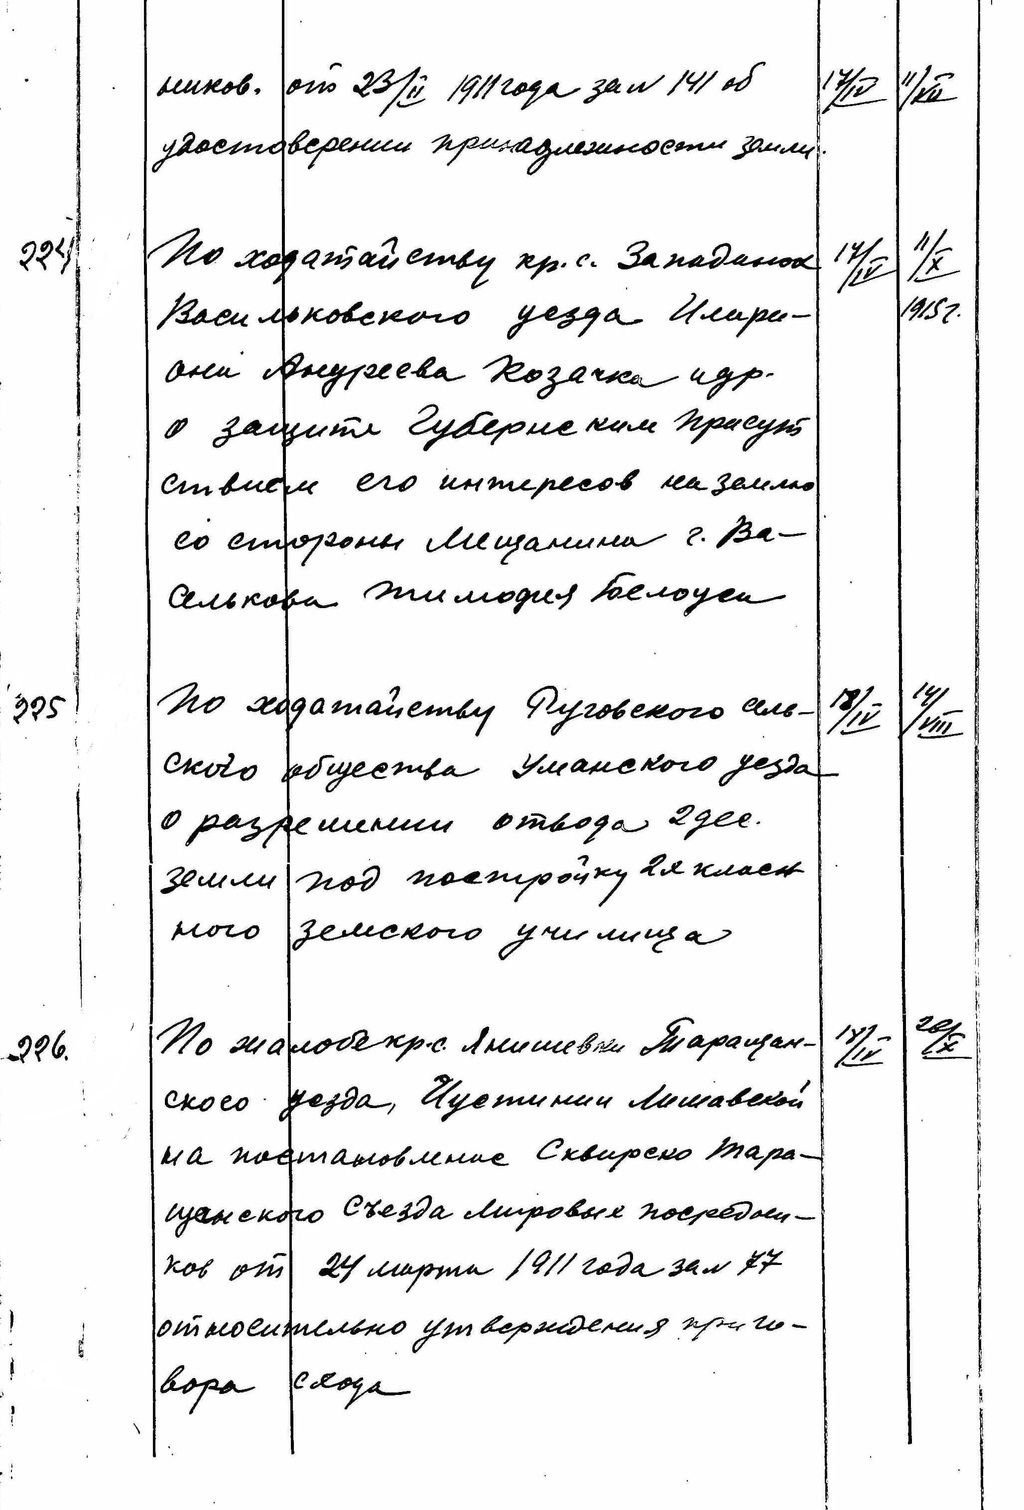 ников. от 23/II 1911 года за N 141 об 17/IV 11/VII
удостоверении принадлежности земли.
224 По ходатайству кр. с. Западинок 17/IV 11/X
Васильковского уезда Илари- 1915 г.
она Андреева Козачка и др.
о защите Губернским Присут
ствием его интересов на землю
со стороны Мещанина г. Ва-
силькова Тимофея Белоуса
225 По ходатайству Руговского сель- 18/IV 14/VIII
ского общества Уманского уезда
о разрешении отвода 2 дес.
земли под постройку 2х класс
ного земского училища
226. По жалобе кр. с. Янишевки Таращан- 18/IV 20/X
ского уезда, Иустинии Лишавской
на постановление Сквирско Тара-
щанского Съезда Мировых посредни-
ков от 24 марта 1911 года за N 77
относительно утверждения приго-
вора схода